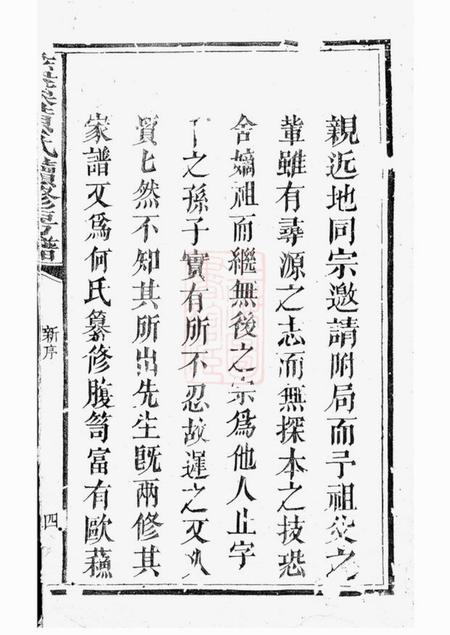 親近地同宗邀請附局而予祖父之
輩雖有尋源之志而無探本之技恐
舍嫡祖而繼無後之宗為他人止字
之孫子實有所不忍故遲之又久
貿七然不知其所出先生既兩修其
家譜又為何氏纂修腹笥富有歐蘓
氏續修房譜
新序
四